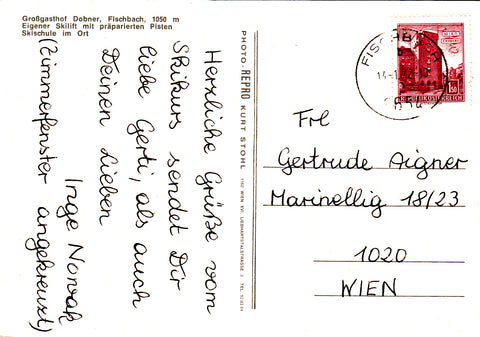 Großgasthof Dobner, Fischbach, 1050 m
Eigener Skilift mit präparierten Pisten
Skischule im Ort
Herzliche Grüße vom
Skikurs sendet Dir
liebe Gerti, als auch
Deinen Lieben
Inge Novak
(Zimmerfenster angekreuzt)
PHOTO-REPRO KURT STOHL
FISCHBACH
Frl
Gertrude Aigner
Marinellig 18/23
1020
WIEN